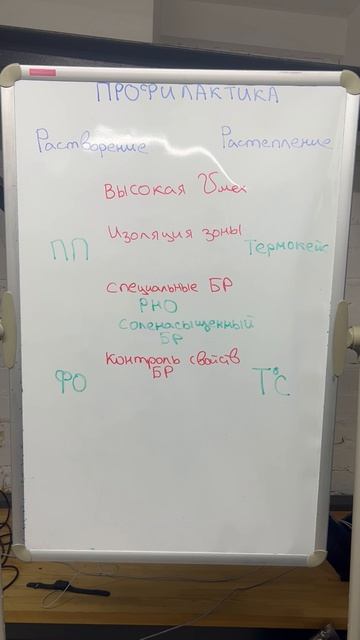 ПРОФИЛАКТИКА
Растворение Растепление
Высокая Vмех
Изоляция зоны
ПП Термокейс
специальные БР
РНО
соленасыщенный
БР
контроль свойств
БР
ФО T°C